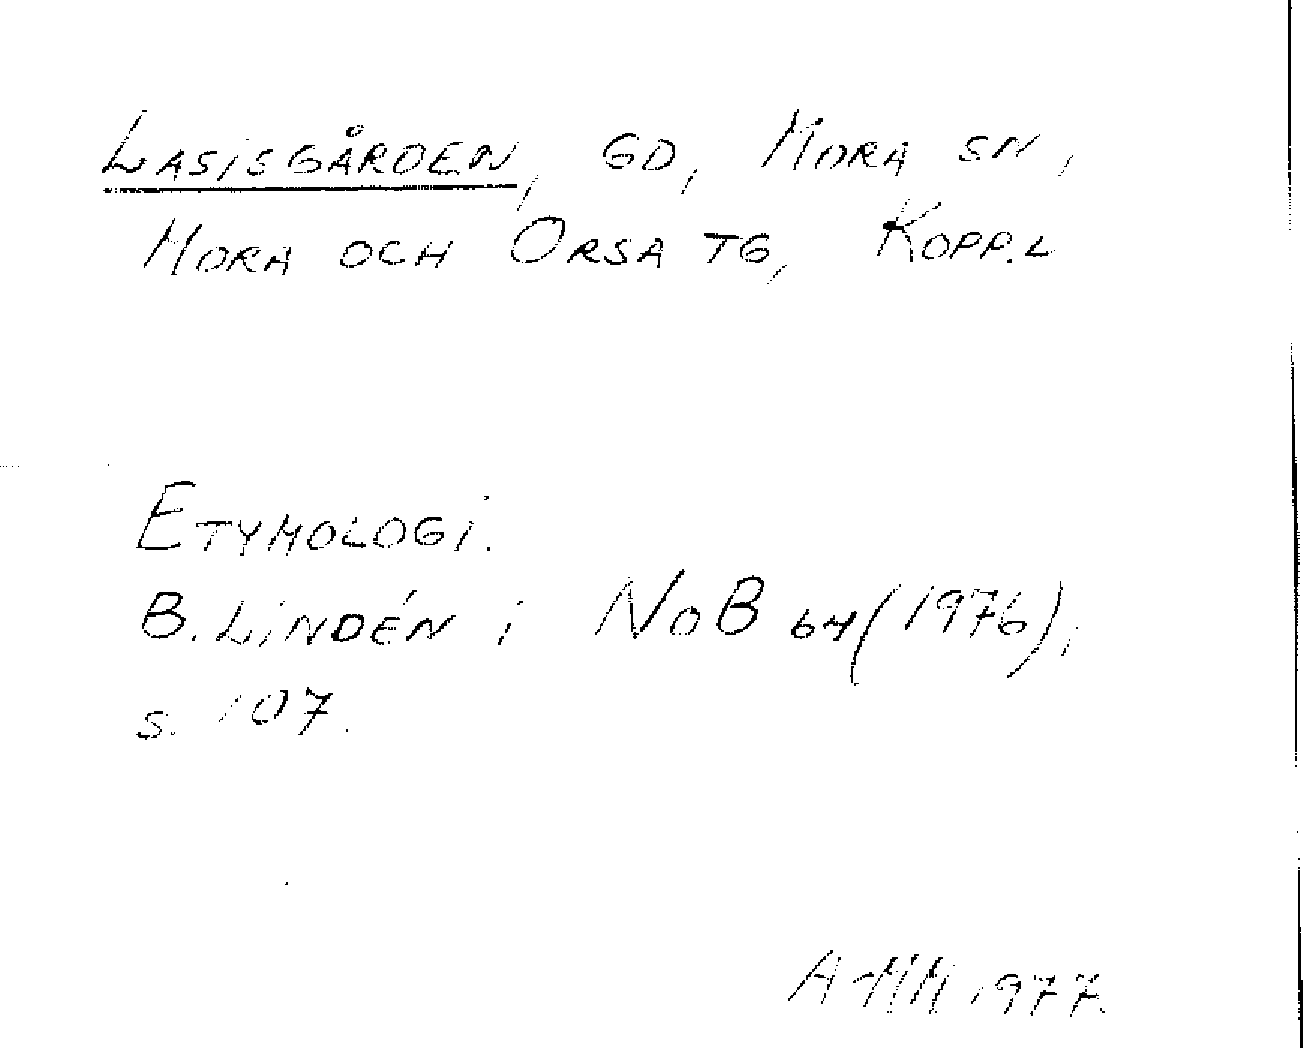 LASISGÅRDEN, GD, MORA SN,
MORA OCH ORSA TG, KOPP.L
ETYMOLOGI.
B. LINDÉN i NoB 64 (1976),
s. 107.
A-MM 1977.